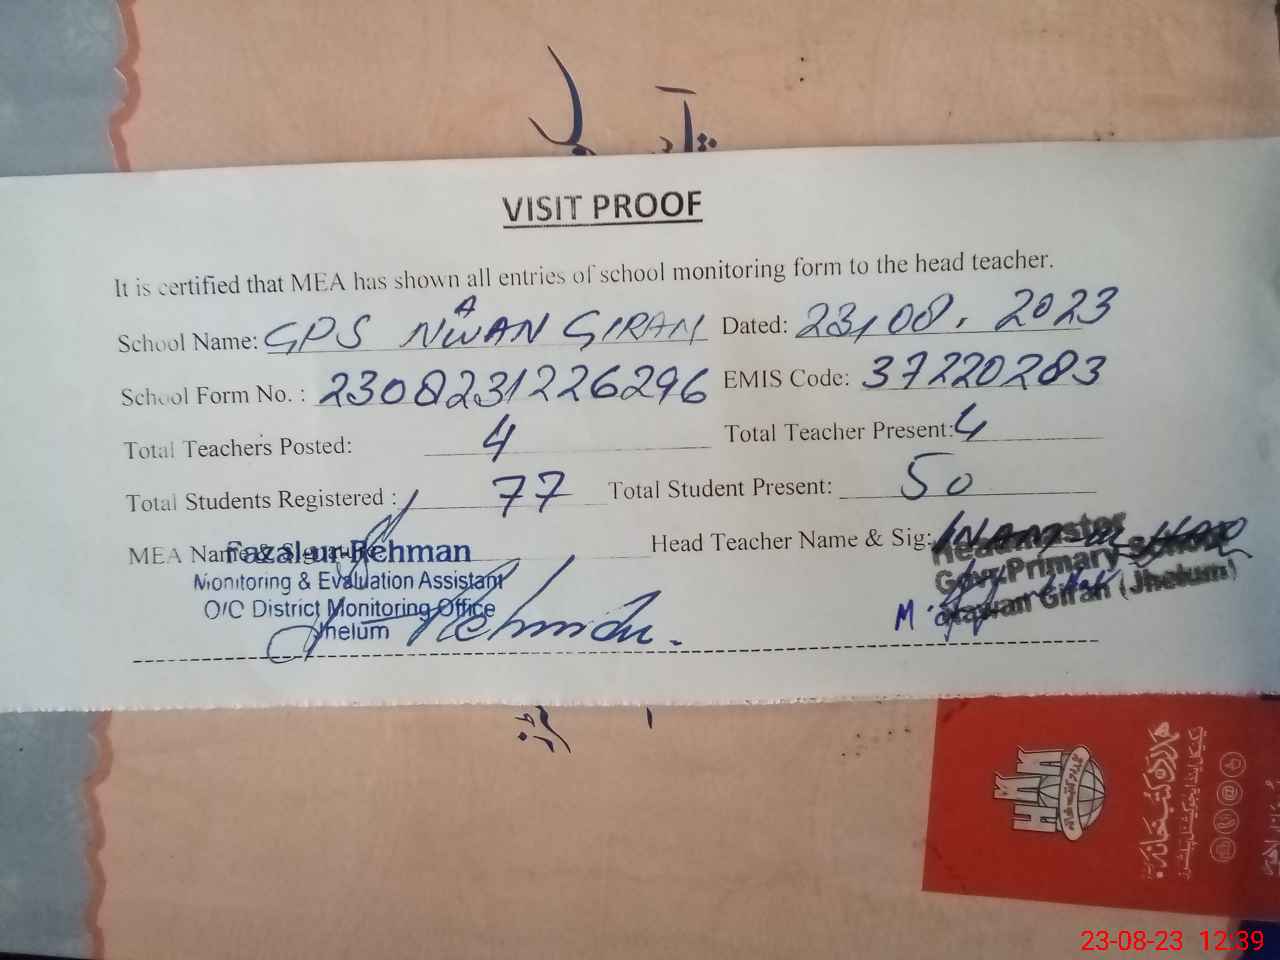 VISIT PROOF
It is certified that MEA has shown all entries of school monitoring form to the head teacher.
School Name: GPS NAWAN GIRAN Dated: 23,08,2023
School Form No. : 2308231226296 EMIS Code: 37220283
Total Teachers Posted: 4 Total Teacher Present: 4
Total Students Registered : 77 Total Student Present: 50
MEA Name & Head Teacher Name & Sig:
Fazal-ur-Rehman
Monitoring & Evaluation Assistant
O/O District Monitoring Office
Jhelum
Headmaster
Govt. Primary School
Nawan Girah (Jhelum)
ہمدرد کتب خانہ
23-08-23 12:39